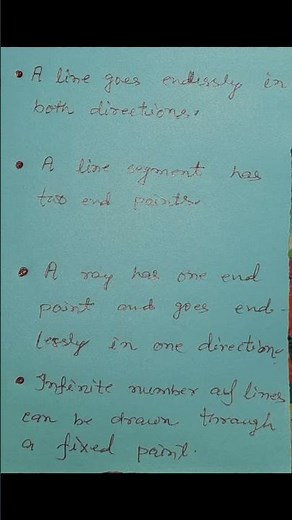 • A line goes endlessly in
both directions.
• A line segment has
two end points.
• A ray has one end
point and goes end-
lessly in one direction.
• Infinite number of lines
can be drawn through
a fixed point.